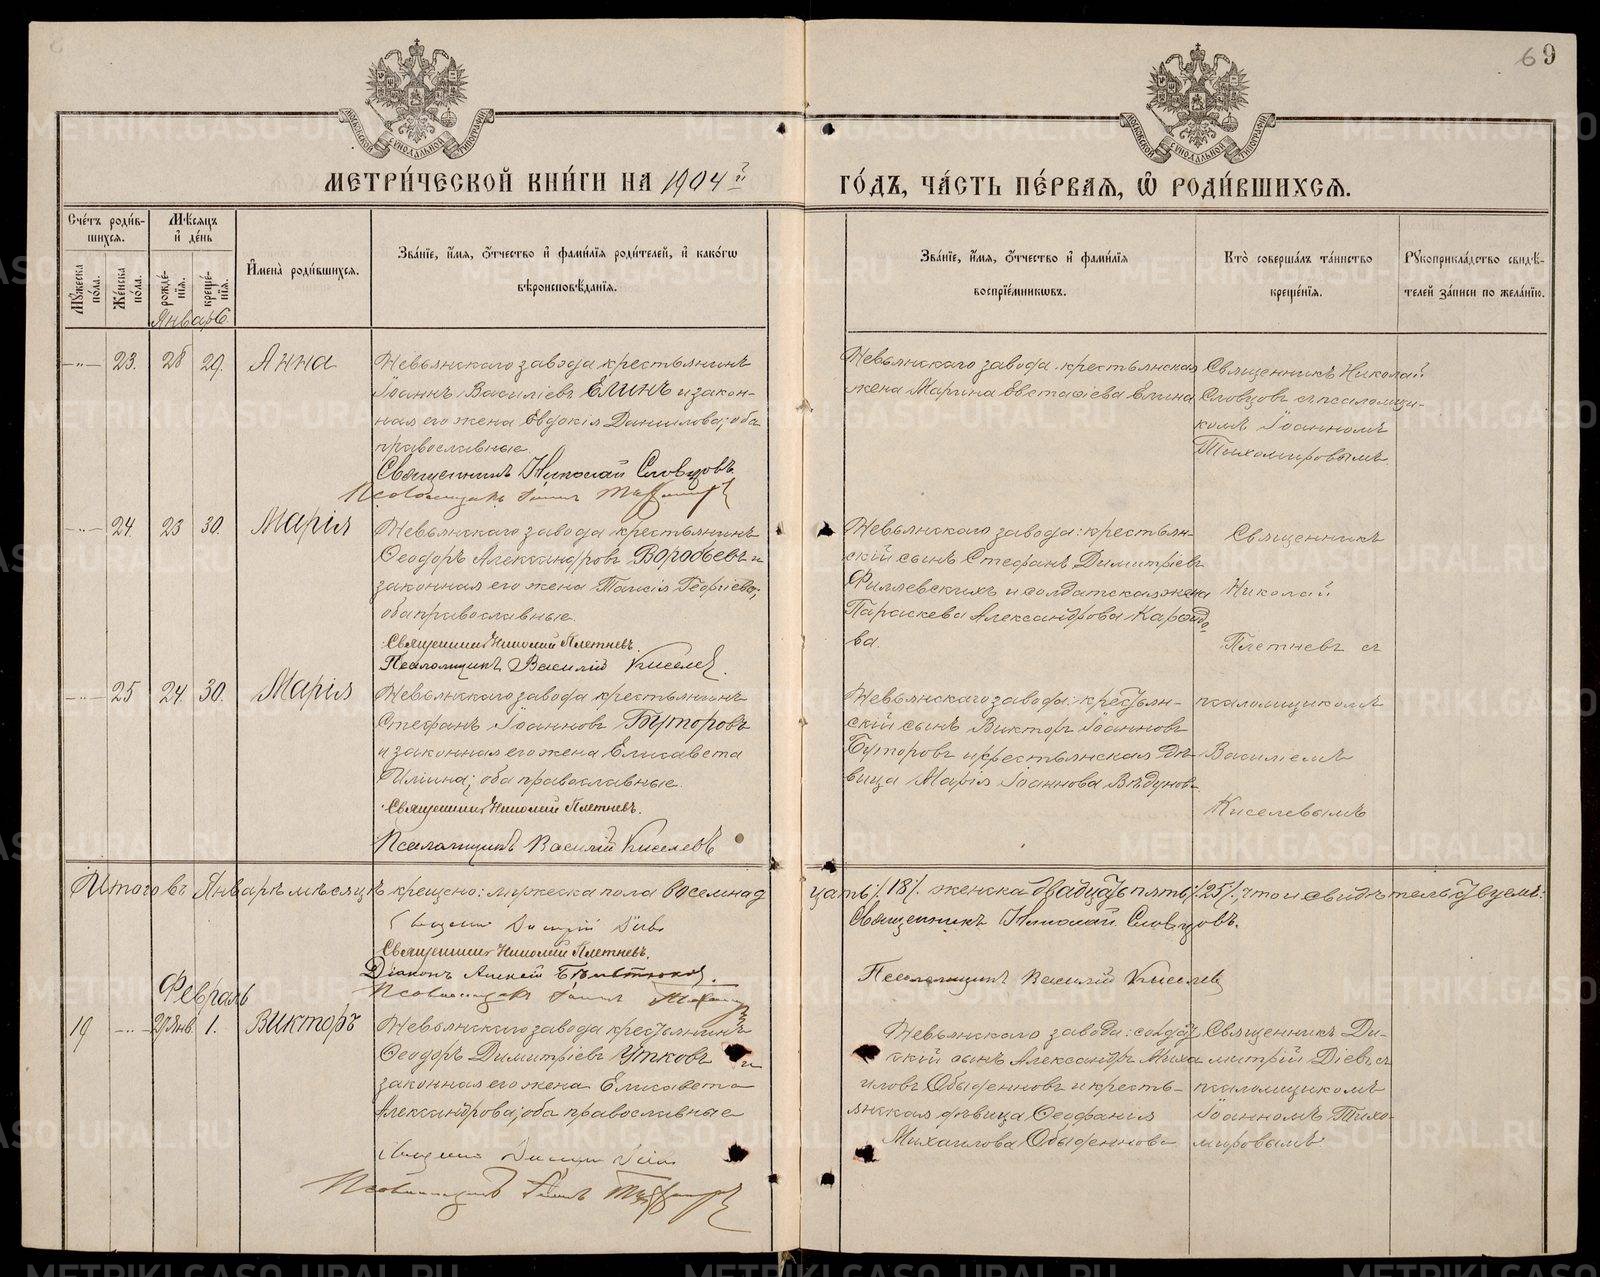 69
МОСКОВСКОЙ СУНОДАЛЬНОЙ ТИПОГРАФІИ
МОСКОВСКОЙ СУНОДАЛЬНОЙ ТИПОГРАФІИ
МЕТРИ́ЧЕСКОЙ КНИ́ГИ НА 1904й
ГО́ДЪ, ЧА́СТЬ ПЕ́РВАЯ, Ѽ РОДИ́ВШИХСЯ.
Сче́тъ роди́в-
шихся.
Мꙋ́жеска по́ла.
Же́нска по́ла.
Мѣ́сяцъ
и҆ де́нь
рожде́-
нїя.
креще́-
нїя.
И҆мена̀ роди́вшихся.
Зва́нїе, и҆́мя, ѻ҆́тчество и҆ фами́лїя роди́телей, и҆ како́гѡ
вѣроисповѣ́данїя.
Зва́нїе, и҆́мя, ѻ҆́тчество и҆ фами́лїя
воспрїе́мникѡвъ.
Кто̀ соверша́лъ та́инство
креще́нїя.
Рꙋкоприкла́дство свидѣ́-
телей за́писи по жела́нїю.
Январь
-"- 23. 28 29. Анна
Невьянскаго завода крестьянинъ
Іоаннъ Василіевъ ЕЛИНЪ и закон-
ная его жена Евдокія Даниилова; оба
православные.
Священникъ Николай Словцовъ
Псаломщикъ
Невьянскаго завода крестьянская
жена Марина Евстафіева Елина
Священникъ Николай
Словцовъ съ псаломщи-
комъ Іоанномъ
Тихомировымъ.
-"- 24. 23 30. Марія
Невьянскаго завода крестьянинъ
Ѳеодоръ Александровъ Воробьевъ и
законная его жена Таисія Георгіева;
оба православные.
Священникъ Николай Плетневъ.
Псаломщикъ Василій Киселев.
Невьянскаго завода: крестьян-
скій сынъ Стефанъ Димитріевъ
и солдатская жена
Параскева Александрова
ва.
Священникъ
Николай
Плетневъ съ
-"- 25 24. 30. Марія
Невьянскаго завода крестьянинъ
Стефанъ Іоанновъ Буторовъ
и законная его жена Елисавета
Иліина; оба православные.
Священникъ Николай Плетневъ.
Псаломщикъ Василій Киселевъ
Невьянскаго завода: крестьян-
скій сынъ Викторъ Іоанновъ
Буторовъ и крестьянская дѣ-
вица Марія Іоаннова
псаломщикомъ
Василіемъ
Киселевымъ
Итого въ Январѣ мѣсяцѣ крещено: мужеска пола восемнад
цать /18/. женска двадцать пять /25/, что и свидѣтельствуемъ:
Священникъ Николай Словцовъ.
Священникъ Николай Плетневъ.
Діаконъ Алексій
Псаломщикъ
Псаломщикъ Василій Киселев
Февраль
19 -"- 27 Янв. 1. Викторъ
Невьянскаго завода крестьянинъ
Ѳеодоръ Димитріевъ Утковъ и
законная его жена Елисавета
Александрова; оба православные
Псаломщикъ
Невьянскаго завода: солдат
скій сынъ Александръ Миха
иловъ Обыденновъ и кресть-
янская дѣвица Ѳеофанія
Михаилова Обыденнова
Священникъ Ди-
митрій Діевъ съ
псаломщикомъ
Іоанномъ Тихо-
мировымъ
METRIKI.GASO-URAL.RU